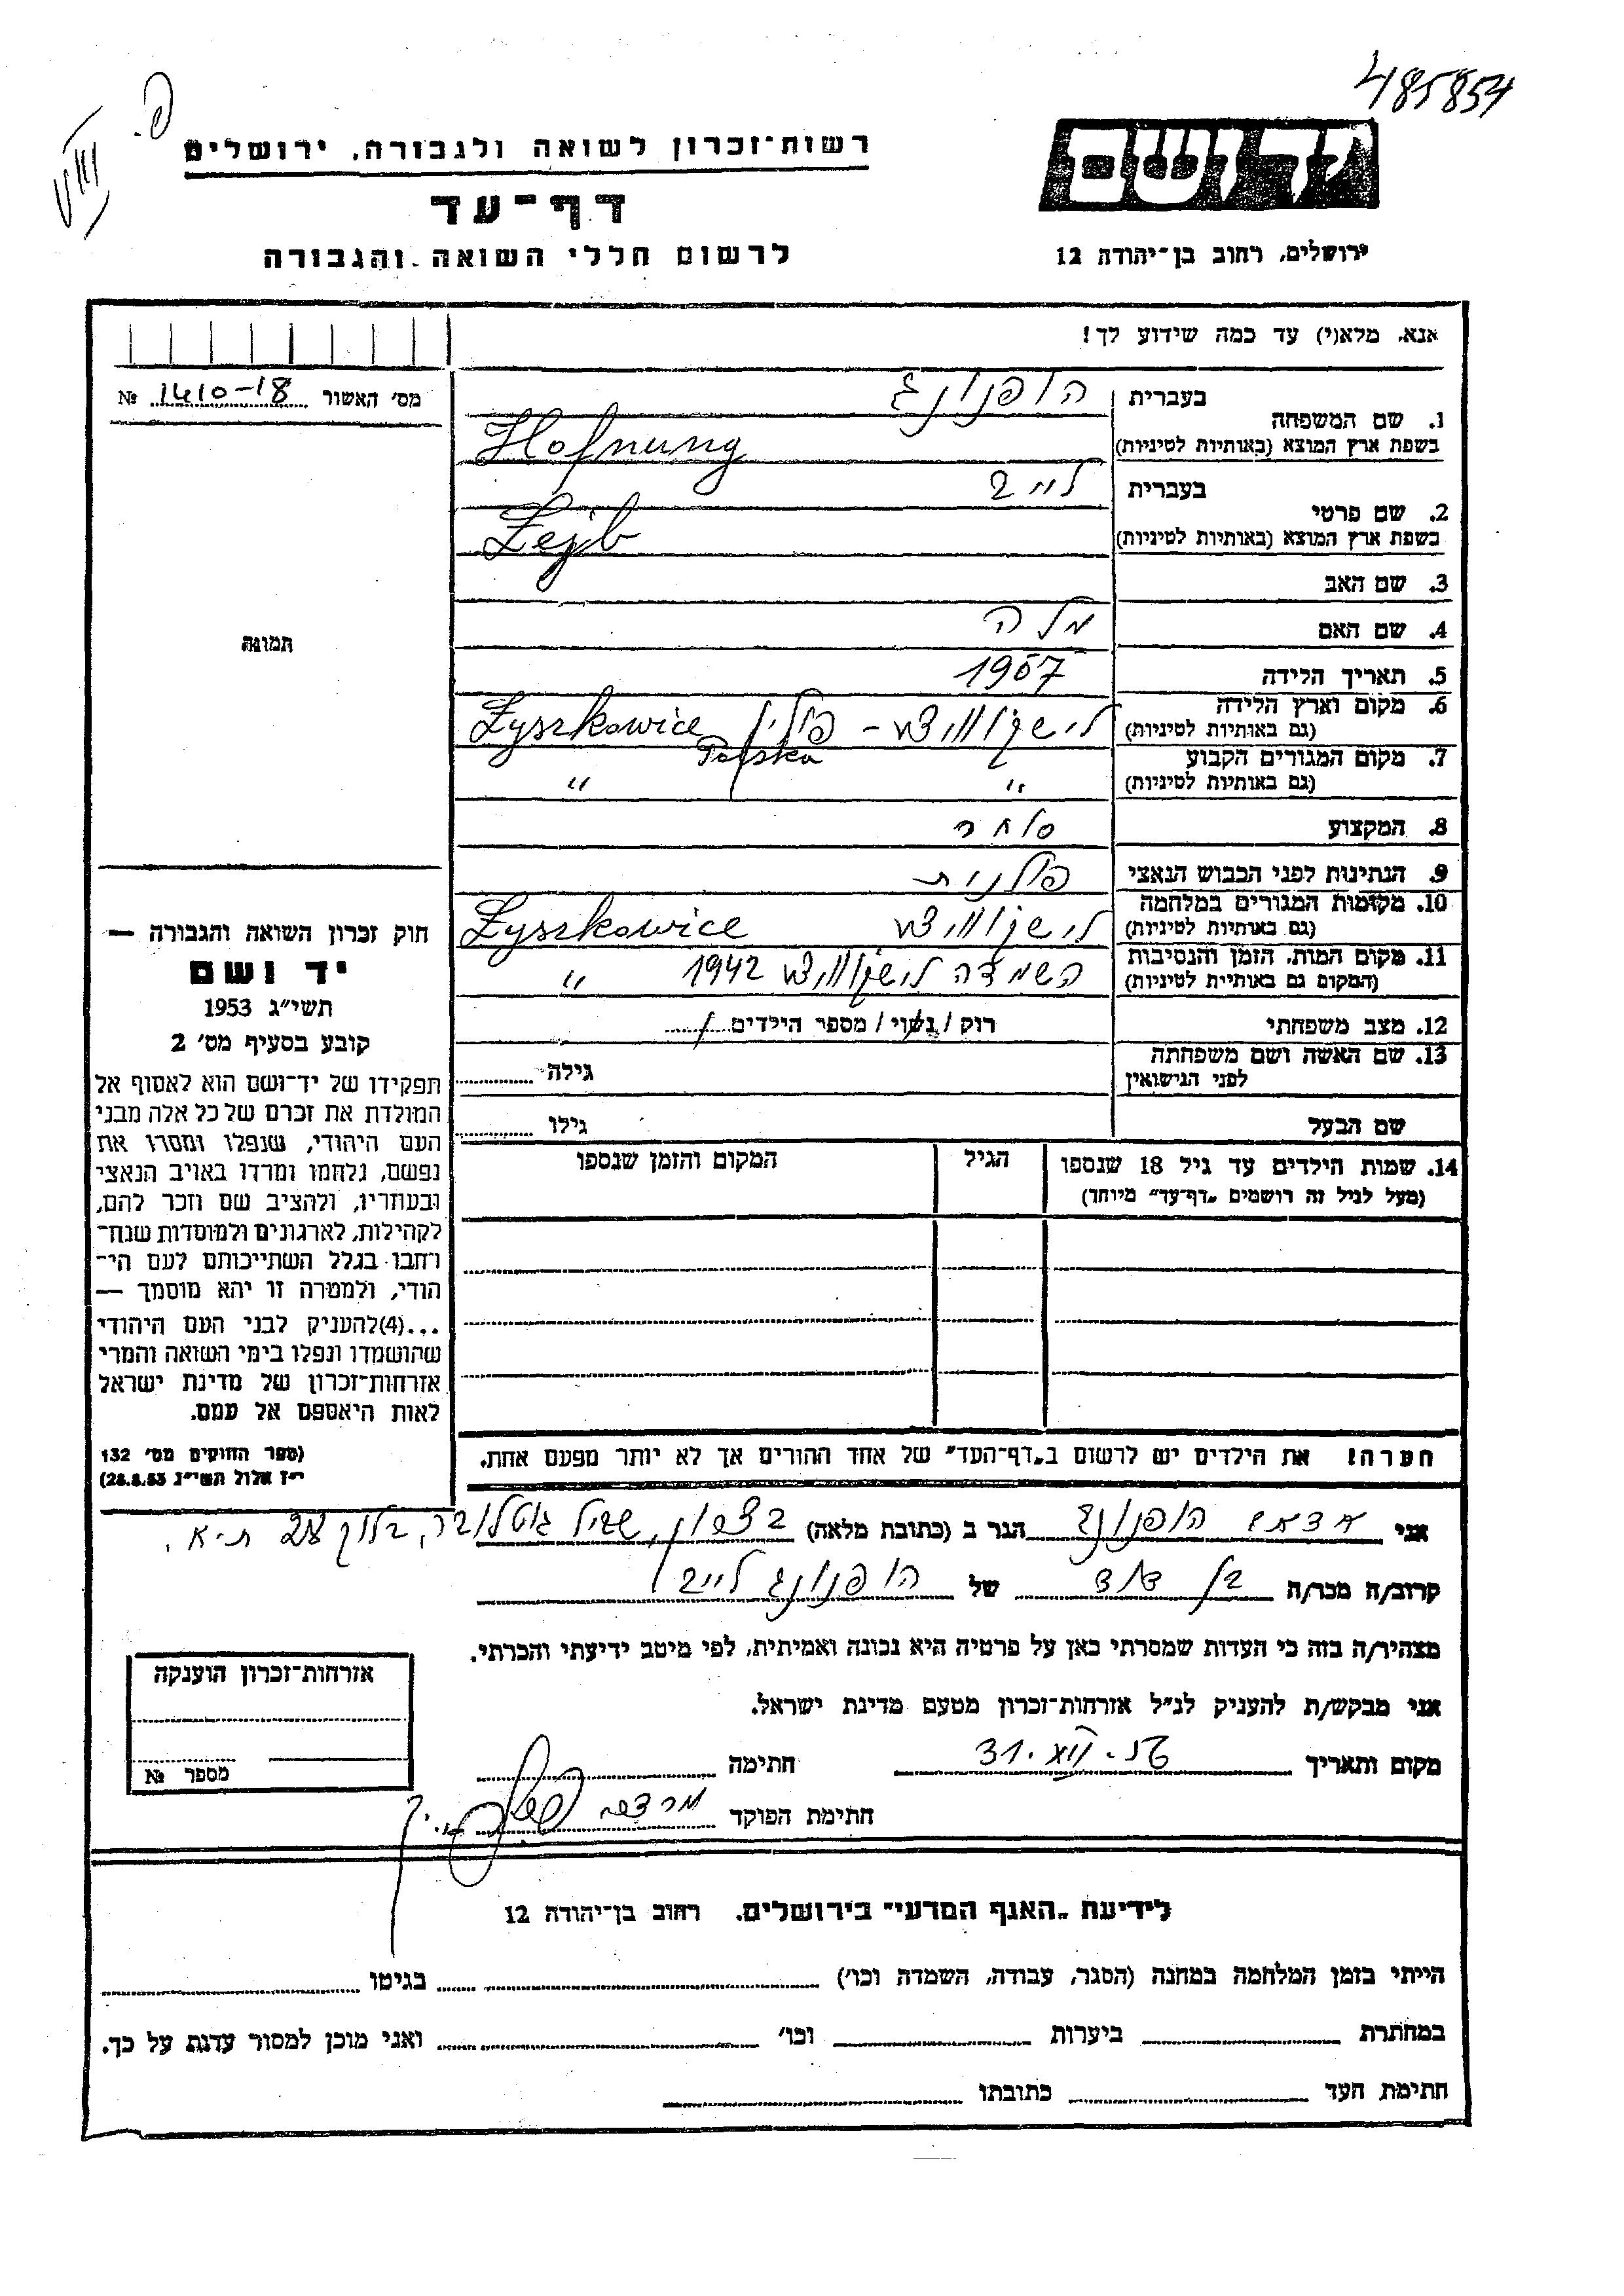 485854
רשות־זכרון לשואה ולגבורה, ירושלים
יד ושם
דף־עד
לרשום חללי השואה והגבורה
ירושלים, רחוב בן־יהודה 12
אנא, מלא(י) עד כמה שידוע לך!
מס׳ האשור 1410-18 №
1. שם המשפחה בעברית הופנונג
בשפת ארץ המוצא (באותיות לטיניות) Hofnung
2. שם פרטי בעברית לייב
בשפת ארץ המוצא (באותיות לטיניות) Lejb
3. שם האב
4. שם האם מלה
תמונה
5. תאריך הלידה 1907
6. מקום וארץ הלידה (גם באותיות לטיניות) לישקווויצא - פולין Łyszkowice Polska
7. מקום המגורים הקבוע (גם באותיות לטיניות) " "
8. המקצוע סוחר
9. הנתינות לפני הכבוש הנאצי פולנית
10. מקומות המגורים במלחמה (גם באותיות לטיניות) לישקווויצא Łyszkowice
11. מקום המות, הזמן והנסיבות (המקום גם באותיות לטיניות) השמדה לישקווויצא 1942 "
12. מצב משפחתי רווק / נשוי / מספר הילדים
13. שם האשה ושם משפחתה לפני הנישואין גילה
שם הבעל גילו
14. שמות הילדים עד גיל 18 שנספו הגיל המקום והזמן שנספו
(מעל לגיל זה רושמים „דף־עד” מיוחד)
חוק זכרון השואה והגבורה —
יד ושם
תשי״ג 1953
קובע בסעיף מס׳ 2
תפקידו של יד־ושם הוא לאסוף אל
המולדת את זכרם של כל אלה מבני
העם היהודי, שנפלו ומסרו את
נפשם, נלחמו ומרדו באויב הנאצי
ובעוזריו, ולהציב שם וזכר להם,
לקהילות, לארגונים ולמוסדות שנח־
רבו בגלל השתייכותם לעם הי־
הודי, ולמטרה זו יהא מוסמך —
...(4) להעניק לבני העם היהודי
שהושמדו ונפלו בימי השואה והמרי
אזרחות־זכרון של מדינת ישראל
לאות היאספם אל עמם.
(ספר החוקים מס׳ 132
י״ז אלול תשי״ג 28.8.53)
הערה! את הילדים יש לרשום ב„דף־העד” של אחד ההורים אך לא יותר מפעם אחת.
אני הופנונג הגר ב (כתובת מלאה) ת-א.
קרוב/ה מכר/ה בן דוד של הופנונג לייב
מצהיר/ה בזה כי העדות שמסרתי כאן על פרטיה היא נכונה ואמיתית, לפי מיטב ידיעתי והכרתי.
אני מבקש/ת להעניק לנ״ל אזרחות־זכרון מטעם מדינת ישראל.
מקום ותאריך חתימה
חתימת הפוקד
אזרחות־זכרון הוענקה
מספר №
לידיעת „האגף המדעי” בירושלים, רחוב בן־יהודה 12
הייתי בזמן המלחמה במחנה (הסגר, עבודה, השמדה וכו׳) בגיטו
במחתרת ביערות וכו׳ ואני מוכן למסור עדות על כך.
חתימת העד כתובתו